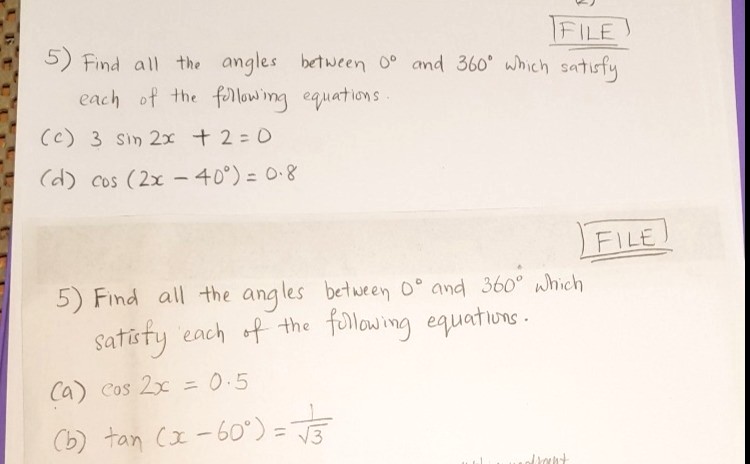 FILE
5) Find all the angles between 0° and 360° which satisfy
each of the following equations.
(c) 3 sin 2x + 2 = 0
(d) cos (2x − 40°) = 0.8
FILE
5) Find all the angles between 0° and 360° which
satisfy each of the following equations.
(a) cos 2x = 0.5
(b) tan (x − 60°) = 1/√3